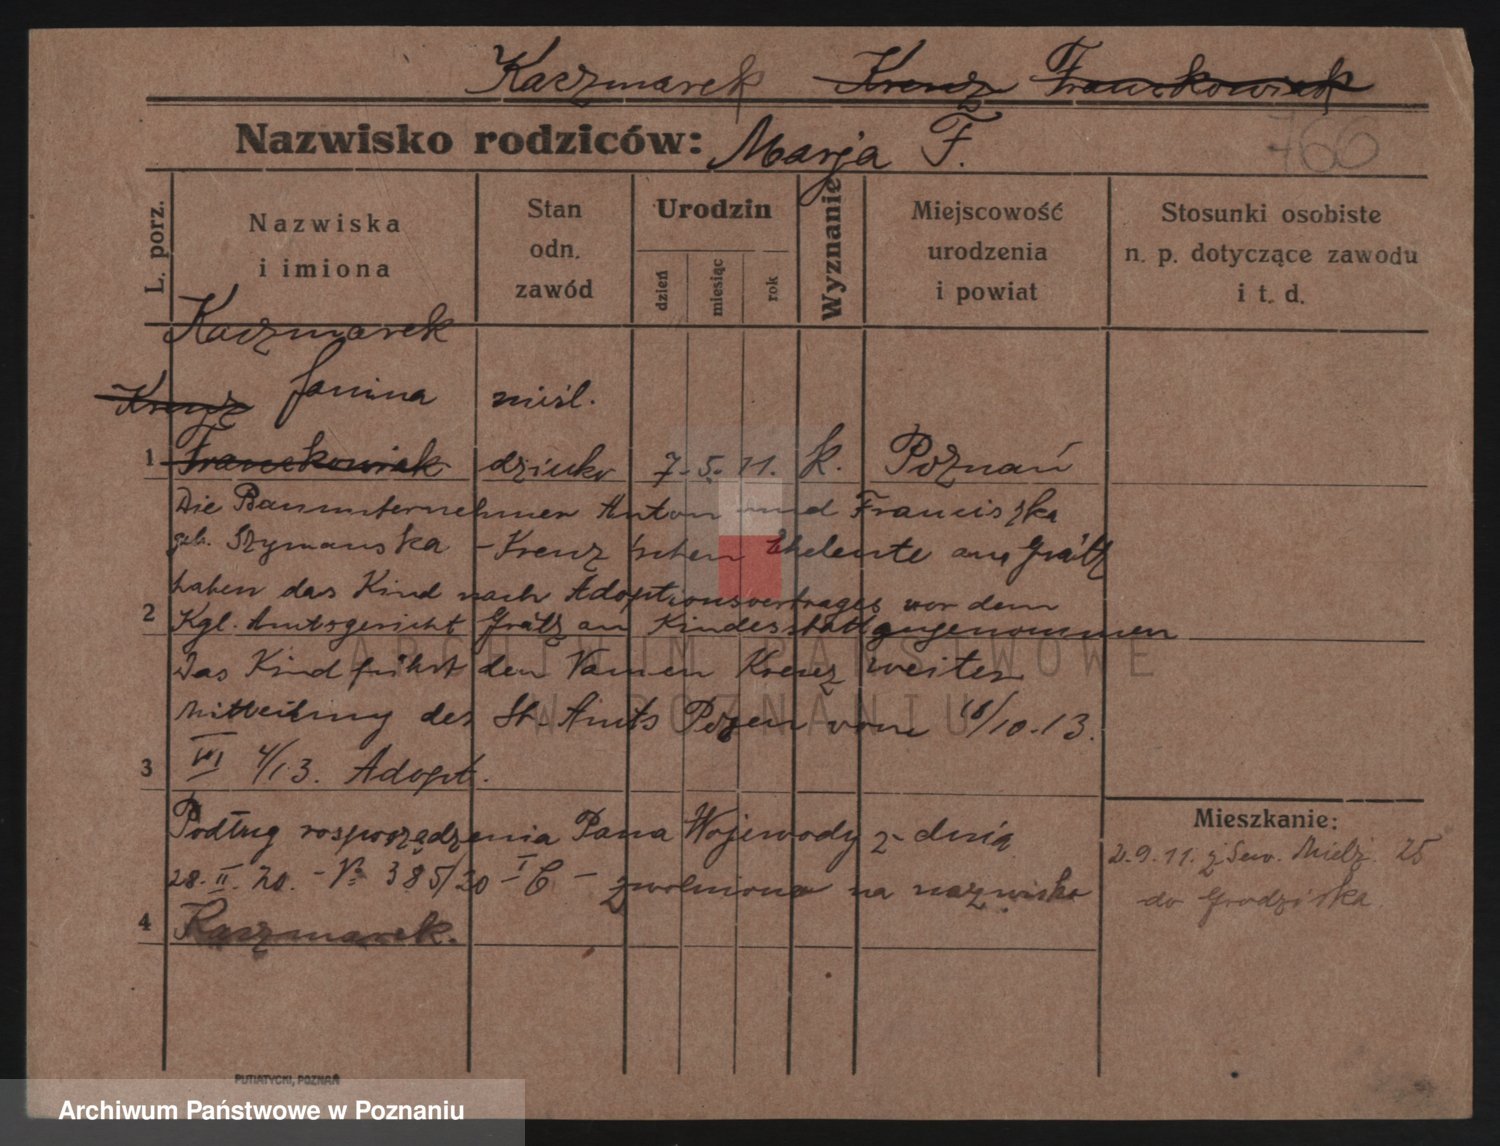 Kaczmarek Krenz Franckowiak
Nazwisko rodziców: Marja F.
766
L. porz.
Nazwiska
i imiona
Stan
odn.
zawód
Urodzin
dzień
miesiąc
rok
Wyznanie
Miejscowość
urodzenia
i powiat
Stosunki osobiste
n. p. dotyczące zawodu
i t. d.
Kaczmarek
Krenz Janina niśl.
1 Franckowiak dziecko 7. 5. 11. k. Poznań
Die Bauunternehmer Anton und Franciszka
geb. Szymanska - Krenz'schen Eheleute aus Grätz
haben das Kind nach Adoptionsvertrages vor dem
2 Kgl. Amtsgericht Grätz an Kindesstatt angenommen
Das Kind führt den Namen Krenz weiter
Mitteilung des St. Amts Posen vom 18/10.13.
3 VI 4/13. Adopt.
Podług rosporządzenia Pana Wojewody z dnia
28. II. 20. - № 385/20 I C - zwolniono na nazwisko
4 Kaczmarek.
Mieszkanie:
2.9.11. z Sew. Mielż. 25
do Grodziska
PUTIATYCKI, POZNAŃ
ARCHIWUM PAŃSTWOWE
W POZNANIU
Archiwum Państwowe w Poznaniu